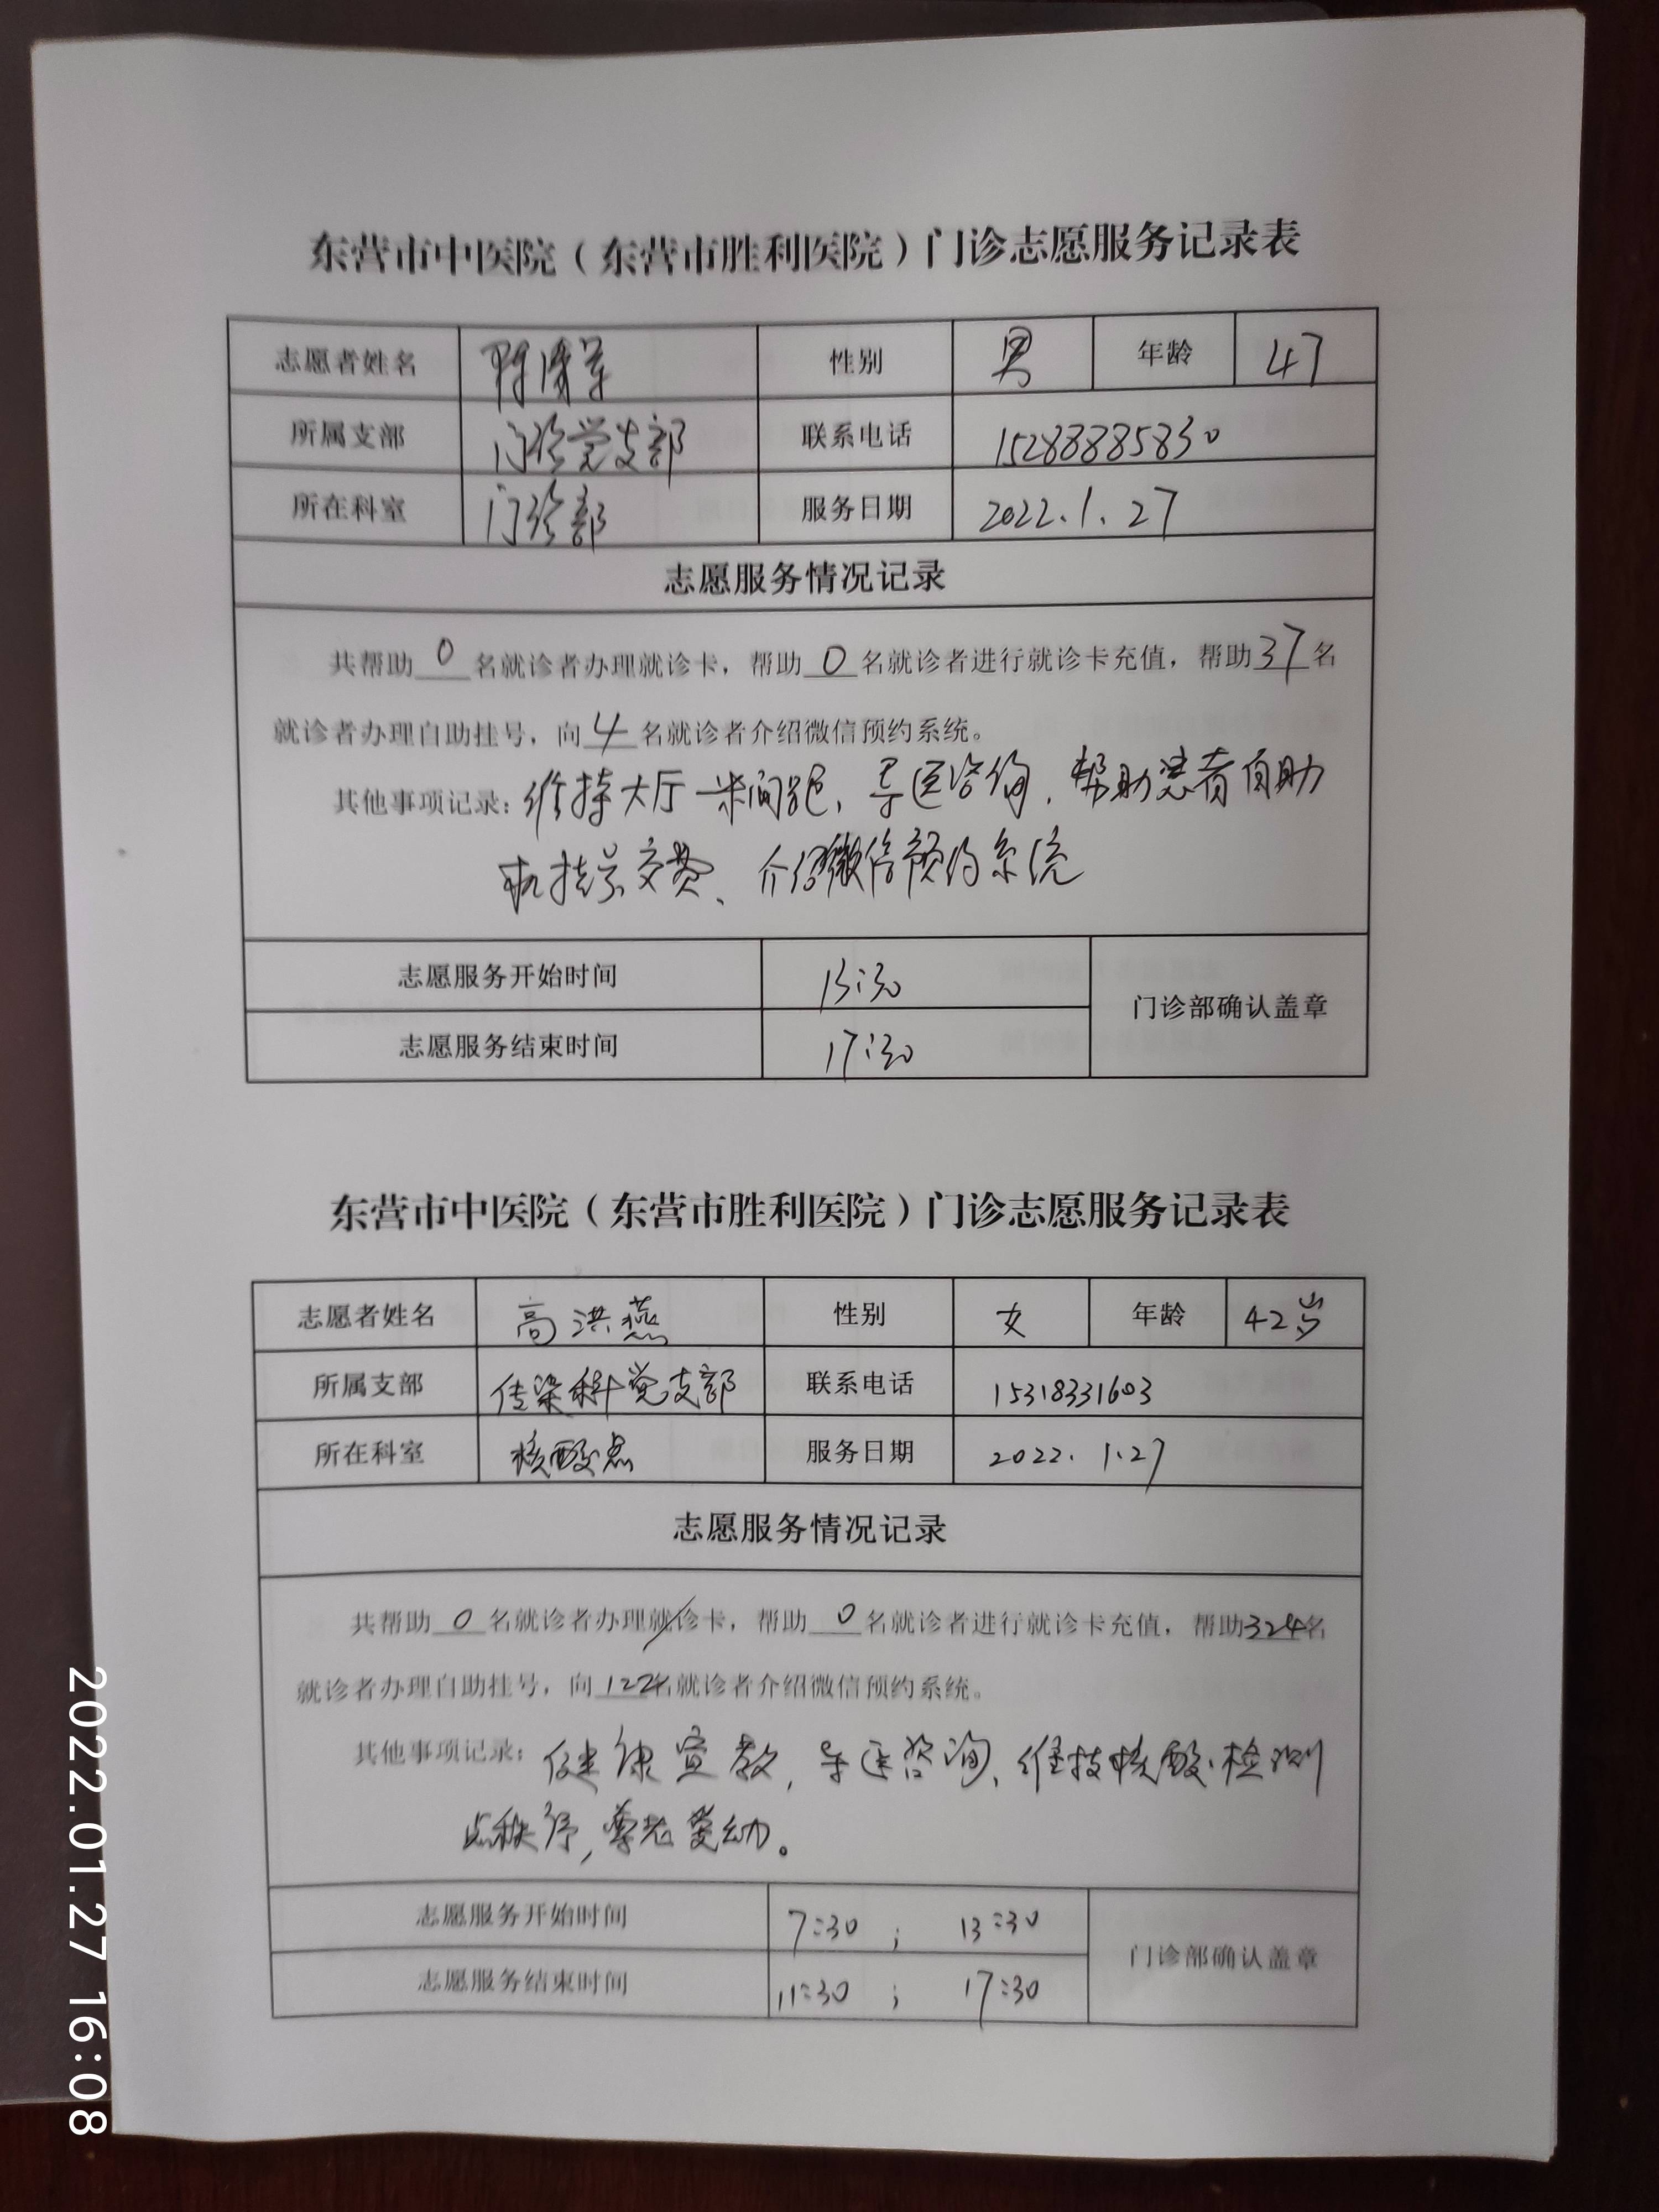 东营市中医院（东营市胜利医院）门诊志愿服务记录表
志愿者姓名 性别 男 年龄 47
所属支部 门诊党支部 联系电话 15288885830
所在科室 门诊部 服务日期 2022.1.27
志愿服务情况记录
共帮助0名就诊者办理就诊卡，帮助0名就诊者进行就诊卡充值，帮助37名
就诊者办理自助挂号，向4名就诊者介绍微信预约系统。
其他事项记录：维持大厅一米间距、导医咨询、帮助患者自助
机挂号交费、介绍微信预约系统
志愿服务开始时间 13:30
门诊部确认盖章
志愿服务结束时间 17:30
东营市中医院（东营市胜利医院）门诊志愿服务记录表
志愿者姓名 高洪燕 性别 女 年龄 42岁
所属支部 传染科党支部 联系电话 15318331603
所在科室 核酸点 服务日期 2022.1.27
志愿服务情况记录
共帮助0名就诊者办理就诊卡，帮助0名就诊者进行就诊卡充值，帮助324名
就诊者办理自助挂号，向122名就诊者介绍微信预约系统。
其他事项记录：健康宣教，导医咨询、维持核酸检测
点秩序，尊老爱幼。
志愿服务开始时间 7:30 ； 13:30
门诊部确认盖章
志愿服务结束时间 11:30 ； 17:30
2022.01.27 16:08